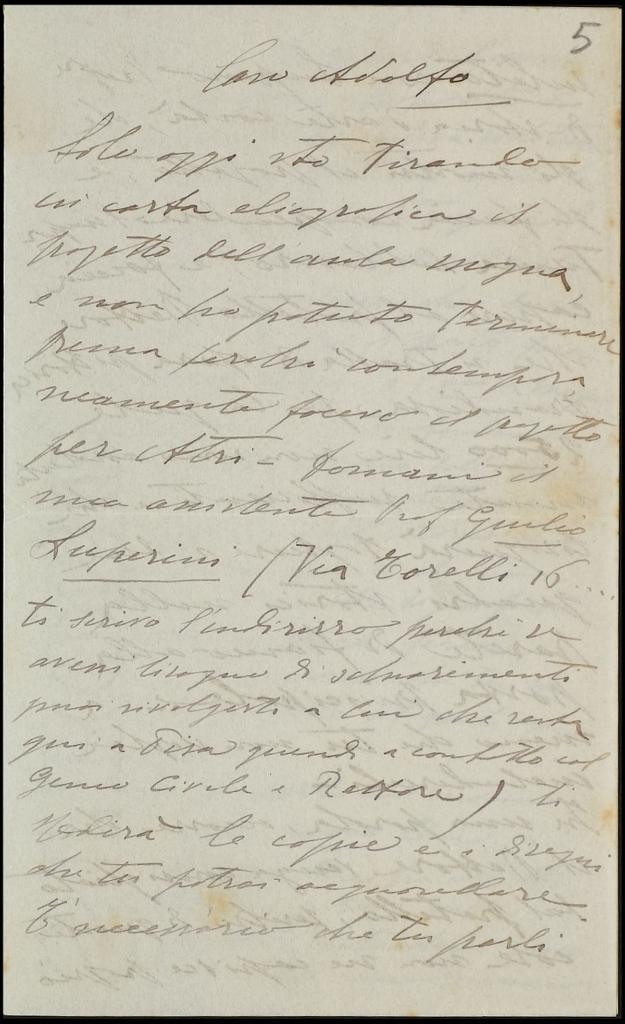 5
Caro Adolfo
Solo oggi sto tirando
in carta eliografica il
progetto dell'aula magna,
e non ho potuto terminare
prima perchè contempora
neamente facevo il progetto
per Atri – Domani il
mio assistente Prof Giulio
Luperini (Via Torelli 16
ti scrivo l'indirizzo perchè se
avessi bisogno di schiarimenti
puoi rivolgerti a lui che resta
qui a Pisa quindi a contatto col
Genio Civile e Rettore) ti
spedirà le copie e i disegni
che tu potrai acquarellare.
È necessario che tu parli